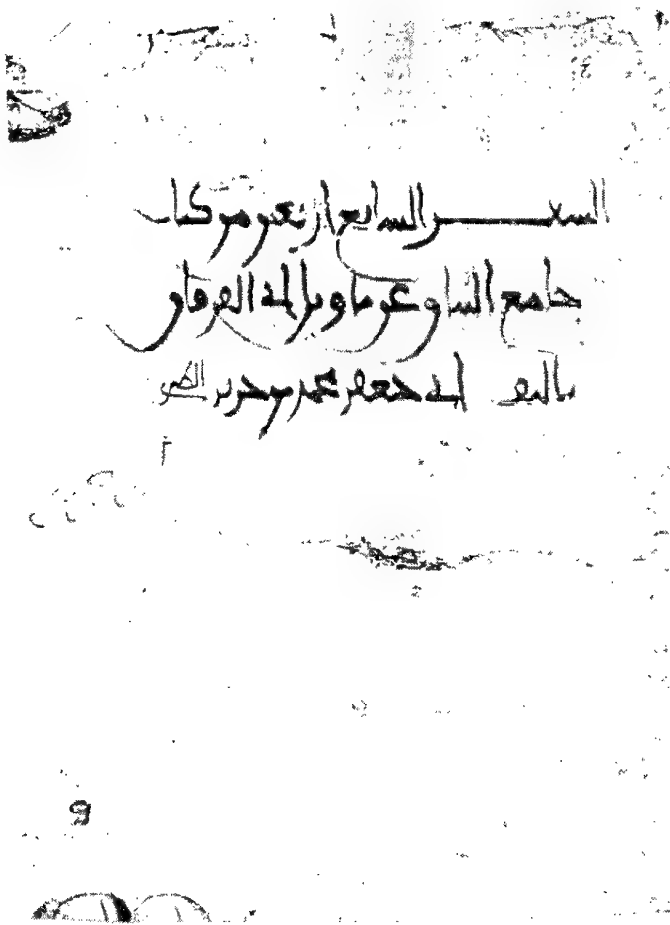 السفر السابع اربعين من كتاب
جامع البيان عن تاويل اي القران
تاليف ابي جعفر محمد بن جرير الطبري